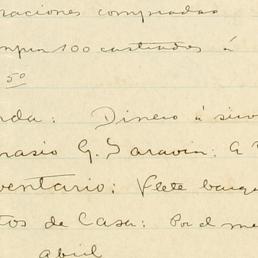 raciones compradas
ompra 100 castrados á
50
nda: Dinero á
nasio G. Saravia: A
ventario: Flete
tos de Casa: Por el me
abril